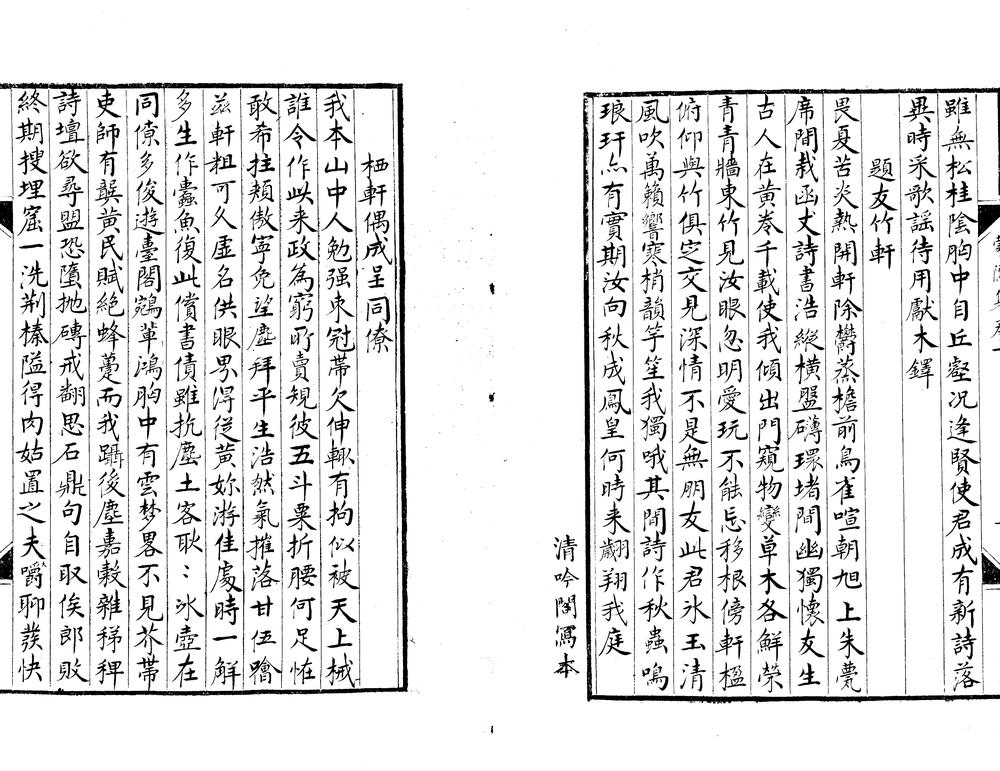 雖無松桂陰胸中自丘壑況逢賢使君成有新詩落
異時采歌謡待用獻木鐸
題友竹軒
畏夏苦炎熱開軒除欝蒸檐前鳥雀喧朝旭上朱甍
席間栽函丈詩書浩縱横盤礴環堵間幽獨懷友生
古人在黄卷千載使我傾出門窺物變草木各鮮榮
青青牆東竹見汝眼忽明愛玩不能忘移根傍軒楹
俯仰與竹俱定交見深情不是無朋友此君氷玉清
風吹萬籟響寒梢韻竽笙我獨哦其間詩作秋蟲鳴
琅玕亦有實期汝向秋成鳳皇何時来翽翔我庭
清吟閣寫本
栖軒偶成呈同僚
我本山中人勉强束冠帯欠伸輙有拘似被天上械
誰令作此来政為窮所賣規彼五斗粟折腰何足恠
敢希拄頬傲寧免望塵拜平生浩然氣摧落甘伍噲
兹軒粗可久虚名供眼界淂従黄妳游佳處時一解
多生作蠹魚復此償書債雖抗塵土客耿〻氷壺在
同僚多俊遊臺閣鵷軰鴻胸中有雲梦畧不見芥蔕
吏師有龔黄民賦絶蜂蠆而我躡後塵嘉穀雜稊稗
詩壇欲尋盟恐墮抛磚戒翻思石鼎句自取俟郎敗
終期搜埋窟一洗荆榛隘得肉姑置之大嚼聊𤼵快